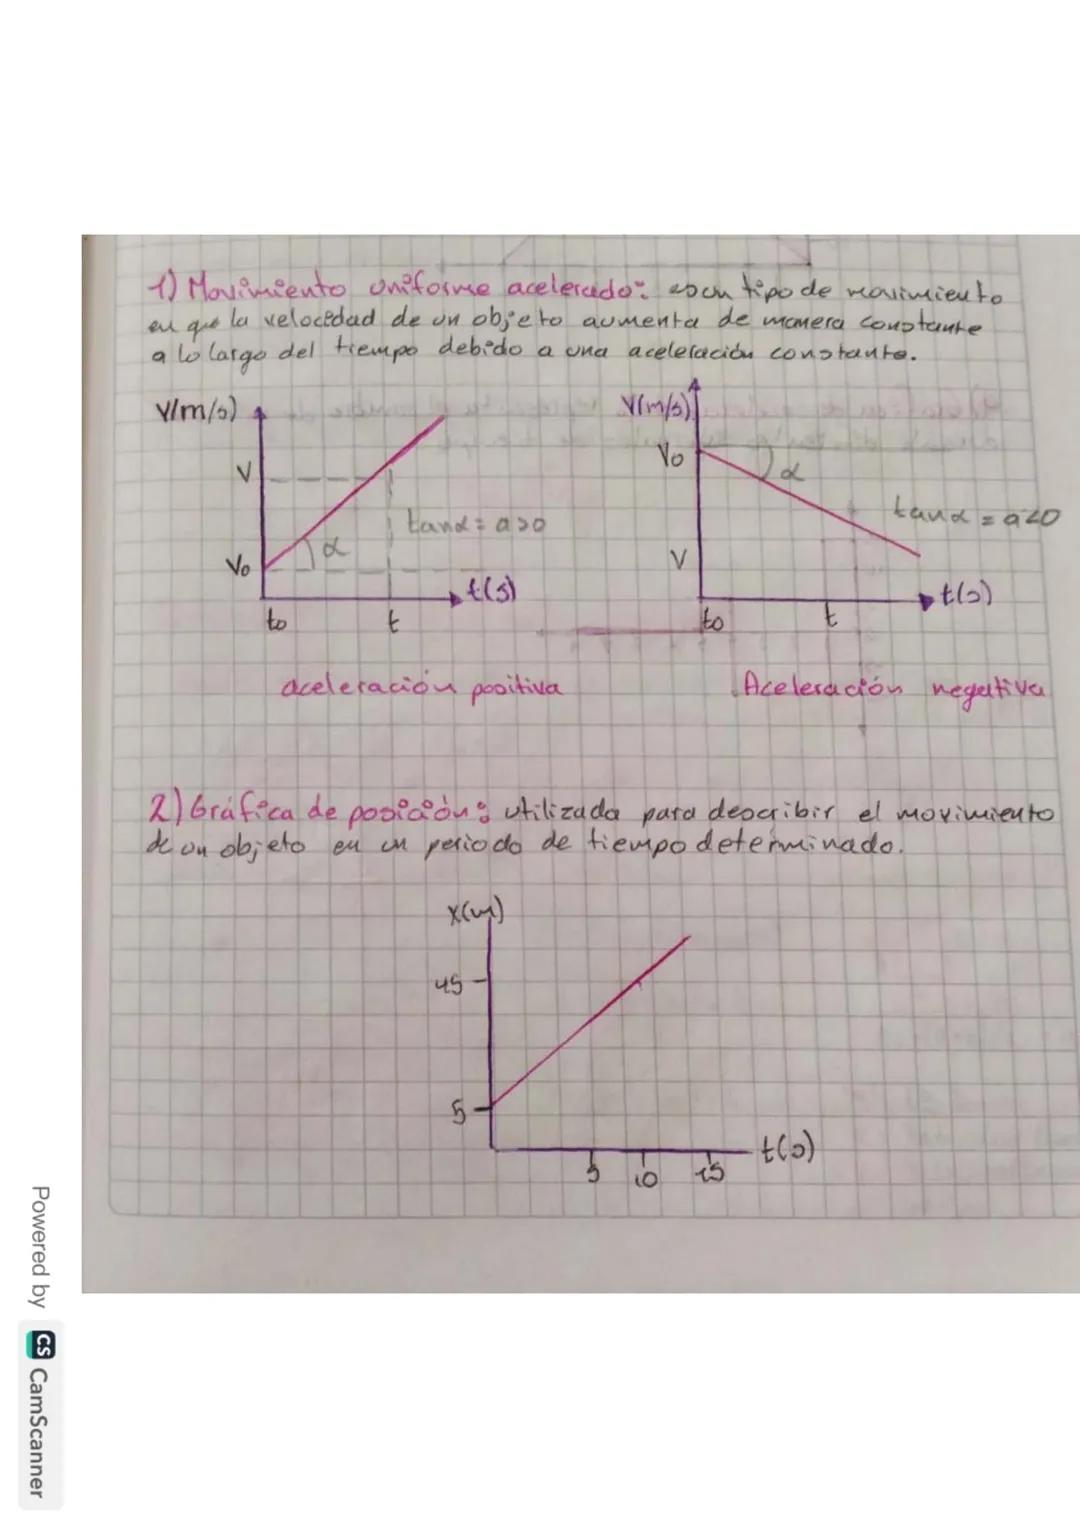 1) Movimiento uniforme acelerado: es un tipo de movimiento
en que la velocidad de un objeto aumenta de manera constante
a lo largo del tiempo debido a una aceleración constante.
V(m/s)
V
Vo
α
tanα = a>0
t(s)
to
t
aceleración positiva
V(m/s)
Vo
α
tanα = a<0
V
t(s)
to
t
Aceleración negativa
2) Gráfica de posición: utilizada para describir el movimiento
de un objeto en un periodo de tiempo determinado.
X(m)
45
5
t(s)
5
10
15
Powered by CS CamScanner